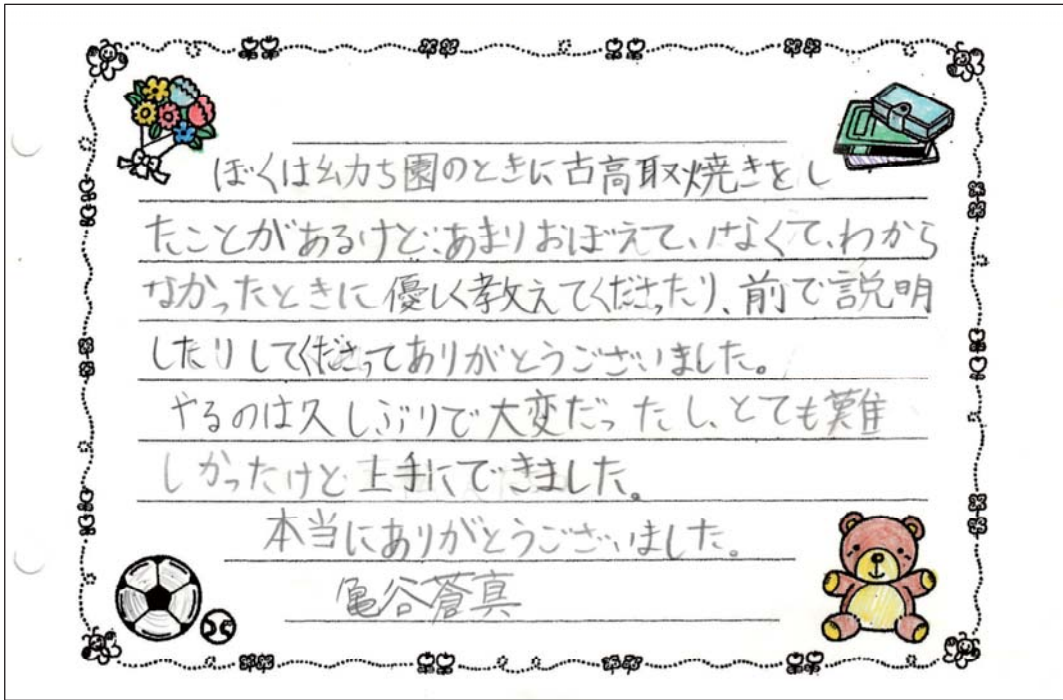 ぼくは幼ち園のときに古高取焼きをし
たことがあるけど、あまりおぼえて、いなくて、わから
なかったときに優しく教えてくださったり、前で説明
したりしてくださってありがとうございました。
やるのは久しぶりで大変だったし、とても難
しかったけど上手にできました。
本当にありがとうございました。
亀谷蒼真